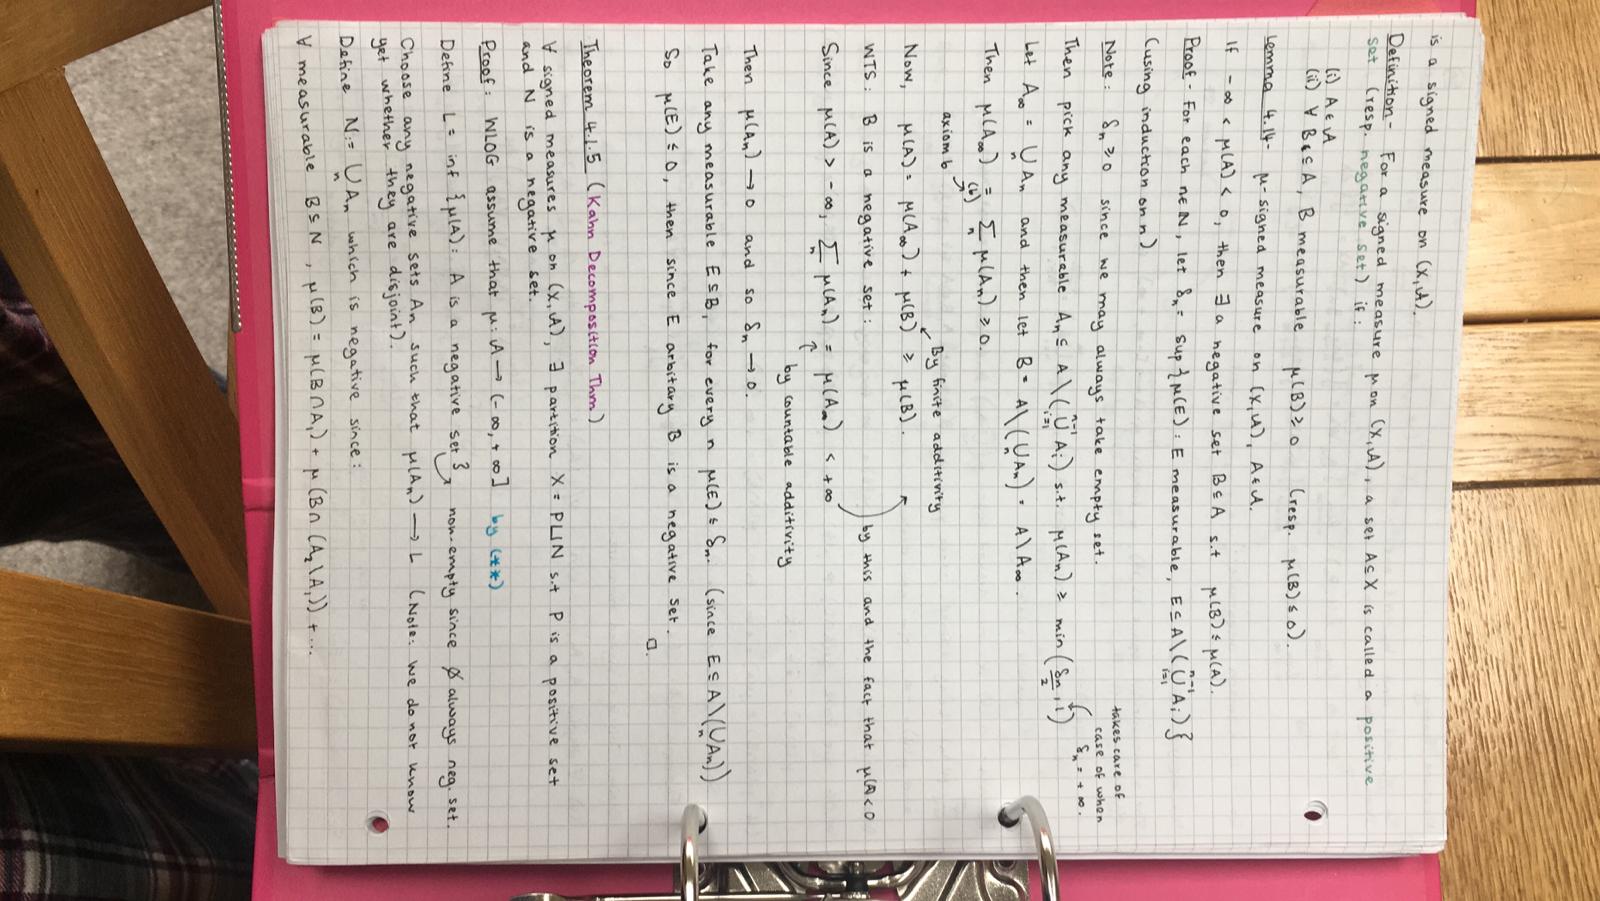 is a signed measure on (X,𝒜).
Definition - For a signed measure μ on (X,𝒜), a set A⊆X is called a positive
set (resp. negative set) if:
(i) A ∈ 𝒜
(ii) ∀ B ⊆ A, B measurable μ(B) ≥ 0 (resp. μ(B) ≤ 0).
Lemma 4.14 - μ-signed measure on (X,𝒜), A∈𝒜.
If -∞ < μ(A) < 0, then ∃ a negative set B⊆A s.t μ(B) ≤ μ(A).
Proof - For each n∈ℕ, let δₙ = sup{μ(E): E measurable, E⊆A\(⋃ᵢ₌₁ⁿ⁻¹ Aᵢ)}
(using induction on n)
Note: δₙ ≥ 0 since we may always take empty set.
takes care of
case of when
δₙ = +∞.
Then pick any measurable Aₙ ⊆ A\(⋃ᵢ₌₁ⁿ⁻¹ Aᵢ) s.t. μ(Aₙ) ≥ min(δₙ/2, 1)
Let A∞ = ⋃ₙ Aₙ and then let B = A\(⋃ₙ Aₙ) = A\A∞.
Then μ(A∞) =(b) Σₙ μ(Aₙ) ≥ 0.
axiom b
By finite additivity
Now, μ(A) = μ(A∞) + μ(B) ≥ μ(B).
WTS: B is a negative set:
by this and the fact that μ(A)<0
Since μ(A) > -∞, Σₙ μ(Aₙ) = μ(A∞) < +∞
by countable additivity
Then μ(Aₙ) → 0 and so δₙ → 0.
Take any measurable E⊆B, for every n μ(E) ≤ δₙ. (since E ⊆ A\(⋃ₙ Aₙ))
So μ(E) ≤ 0, then since E arbitary B is a negative set.
□.
Theorem 4.1.5 (Kahn Decomposition Thm)
∀ signed measures μ on (X,𝒜), ∃ partition X = P⊔N s.t P is a positive set
and N is a negative set.
Proof: WLOG assume that μ: 𝒜 → (-∞,+∞] by (**)
Define L = inf {μ(A): A is a negative set} non-empty since ∅ always neg. set.
Choose any negative sets Aₙ such that μ(Aₙ) → L (Note: we do not know
yet whether they are disjoint).
Define N := ⋃ₙ Aₙ which is negative since:
∀ measurable B⊆N, μ(B) = μ(B∩A₁) + μ(B∩(A₂\A₁)) + ...